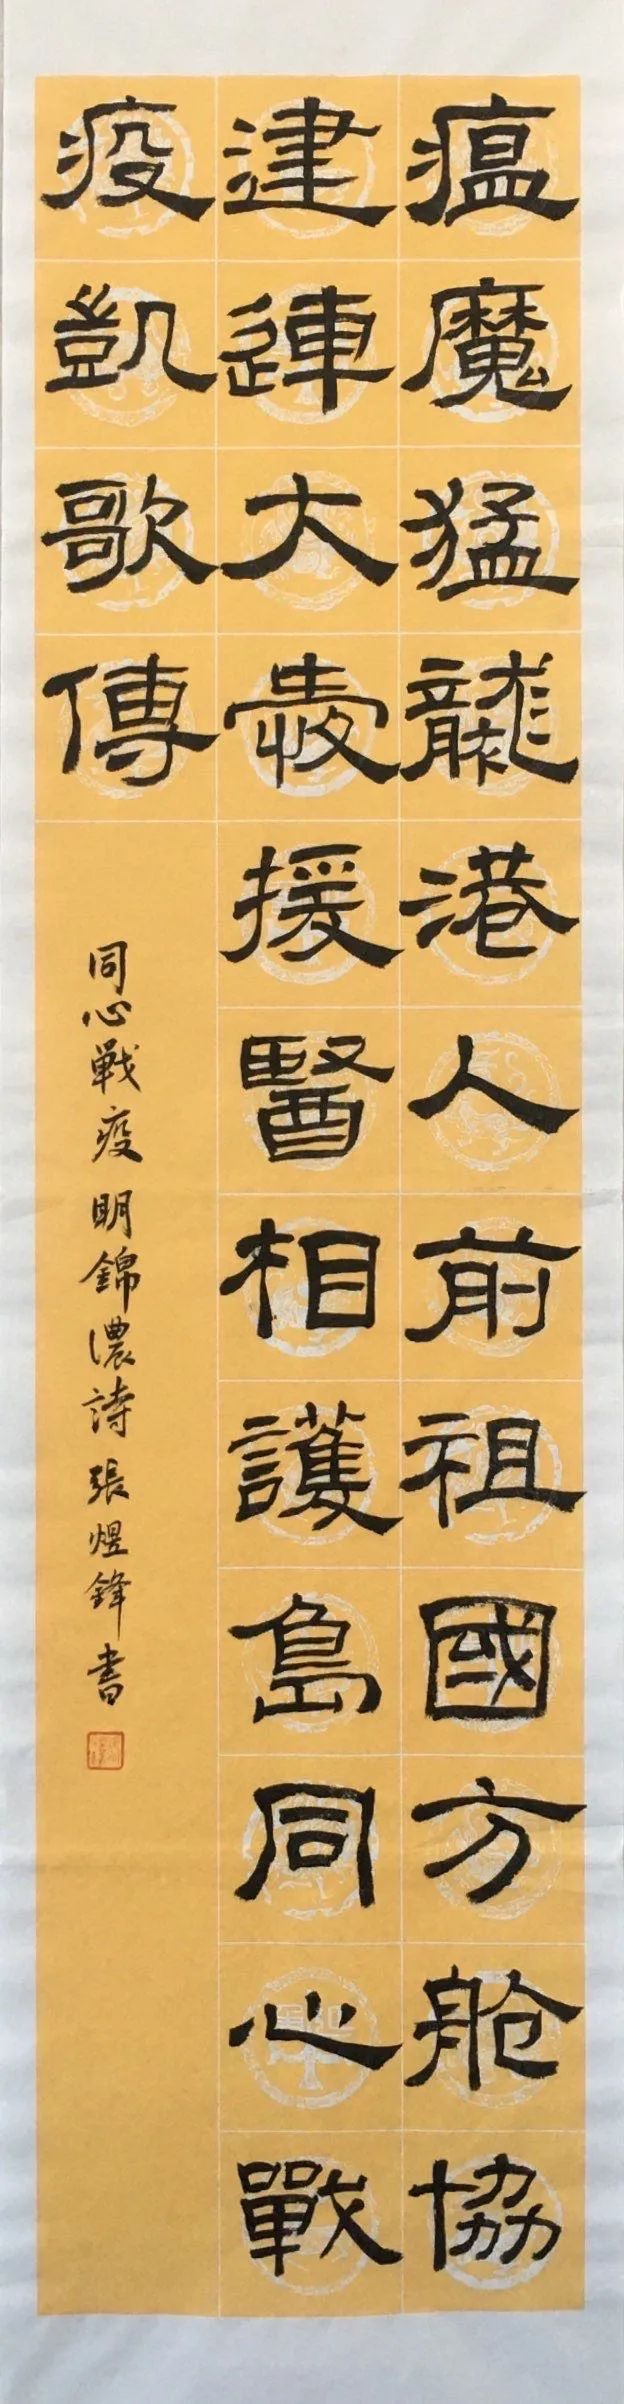 瘟魔猛襲港人前祖國方舱協
建連大愛援醫相護島同心戰
疫凱歌傳
同心戰疫明錦濃詩張煜鋒書